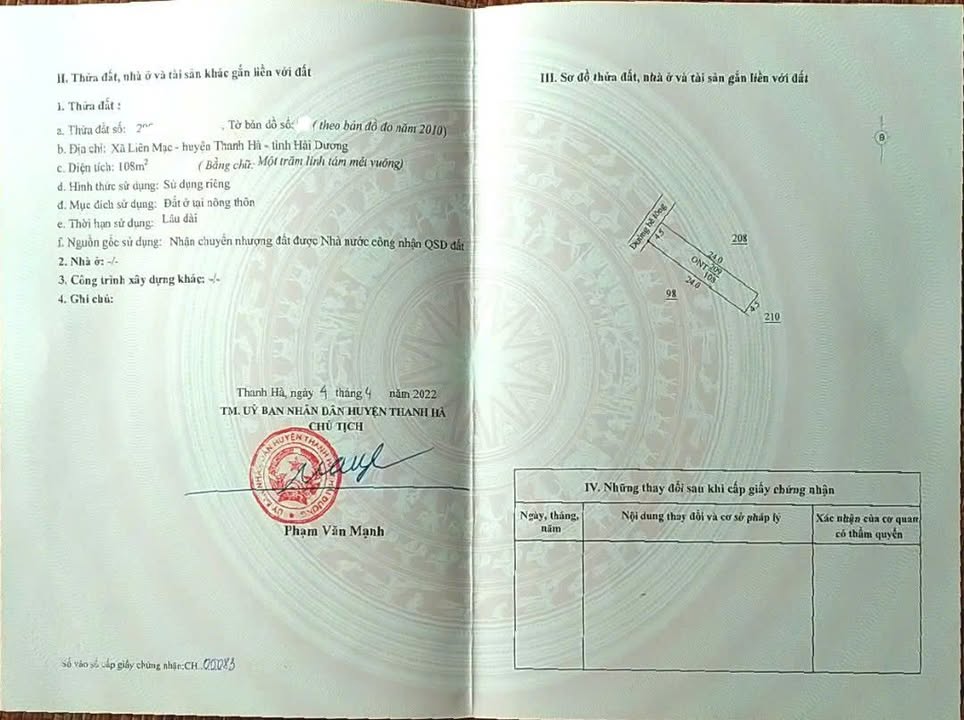 II. Thửa đất, nhà ở và tài sản khác gắn liền với đất
1. Thửa đất :
a. Thửa đất số: , Tờ bản đồ số: ( theo bản đồ đo năm 2010)
b. Địa chỉ: Xã Liên Mạc - huyện Thanh Hà - tỉnh Hải Dương
c. Diện tích: 108m² ( Bằng chữ: Một trăm linh tám mét vuông)
d. Hình thức sử dụng: Sử dụng riêng
đ. Mục đích sử dụng: Đất ở tại nông thôn
e. Thời hạn sử dụng: Lâu dài
f. Nguồn gốc sử dụng: Nhận chuyển nhượng đất được Nhà nước công nhận QSD đất
2. Nhà ở: -/-
3. Công trình xây dựng khác: -/-
4. Ghi chú:
Thanh Hà, ngày 4 tháng 4 năm 2022
TM. UỶ BAN NHÂN DÂN HUYỆN THANH HÀ
CHỦ TỊCH
Phạm Văn Mạnh
Số vào sổ cấp giấy chứng nhận:CH..00083
III. Sơ đồ thửa đất, nhà ở và tài sản gắn liền với đất
B
Đường bê tông
4.5
208
24.0
ONT 209
108
24.0
98
4.5
210
IV. Những thay đổi sau khi cấp giấy chứng nhận
Ngày, tháng, năm
Nội dung thay đổi và cơ sở pháp lý
Xác nhận của cơ quan có thẩm quyền